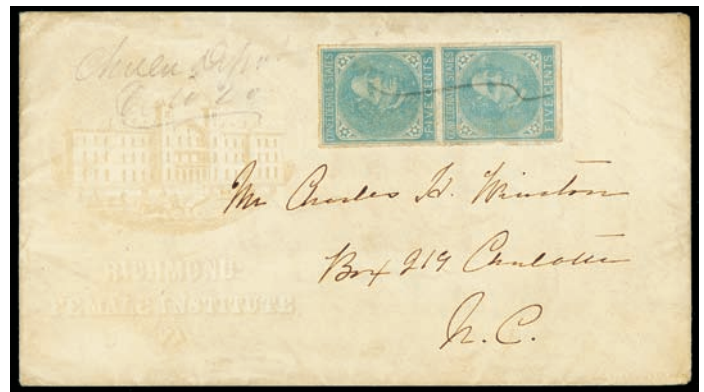 CONFEDERATE STATES
FIVE CENTS
CONFEDERATE STATES
FIVE CENTS
Mr Charles H. Winston
Box 219 Charlotte
N. C.
RICHMOND
FEMALE INSTITUTE